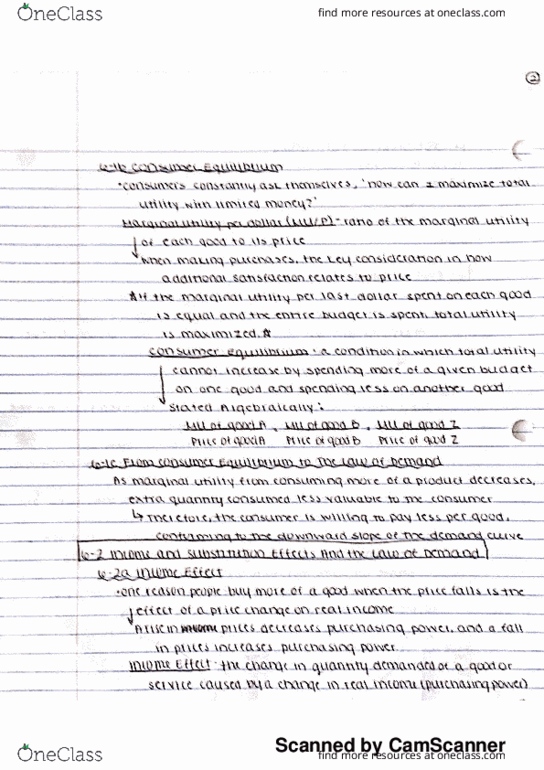 OneClass find more resources at oneclass.com
2
6-1b Consumer Equilibrium
•consumers constantly ask themselves, 'how can I maximize total
utility with limited money?'
Marginal utility per dollar (MU/P) - ratio of the marginal utility
of each good to its price
when making purchases, the key consideration in how
additional satisfaction relates to price
*If the marginal utility per last dollar spent on each good
is equal and the entire budget is spent, total utility
is maximized.*
Consumer Equilibrium: a condition in which total utility
cannot increase by spending more of a given budget
on one good and spending less on another good
Stated Algebraically:
MU of good A = MU of good B = MU of good Z
Price of good A Price of good B Price of good Z
6-1c From Consumer Equilibrium to The Law of Demand
As marginal utility from consuming more of a product decreases,
extra quantity consumed less valuable to the consumer
↳ Therefore, the consumer is willing to pay less per good,
conforming to the downward slope of the demand curve
6-2 Income and Substitution Effects And the Law of Demand
6-2a Income Effect
•one reason people buy more of a good when the price falls is the
effect of a price change on real income
A rise in prices decreases purchasing power, and a fall
in prices increases purchasing power
Income Effect: the change in quantity demanded of a good or
service caused by a change in real income (purchasing power)
Scanned by CamScanner
OneClass find more resources at oneclass.com